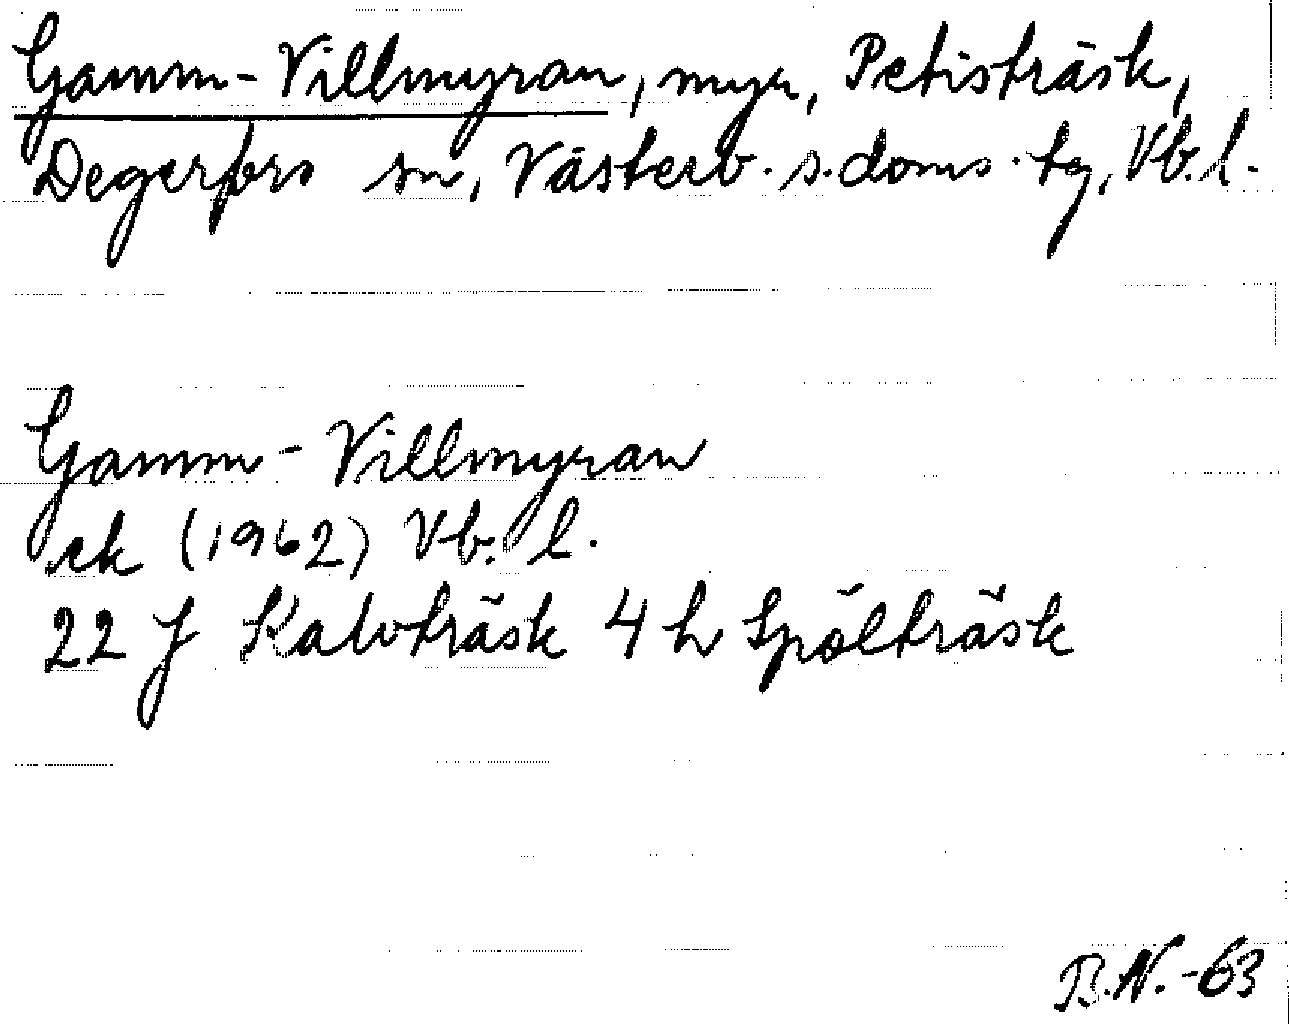 Gamm-Villmyran, myr, Petisträsk,
Degerfors sn, Västerb. s. doms. tg, Vb. l.
Gamm-Villmyran
ek (1962) Vb. l.
22 J Kalvträsk 4 h Spölträsk
B.N.-63